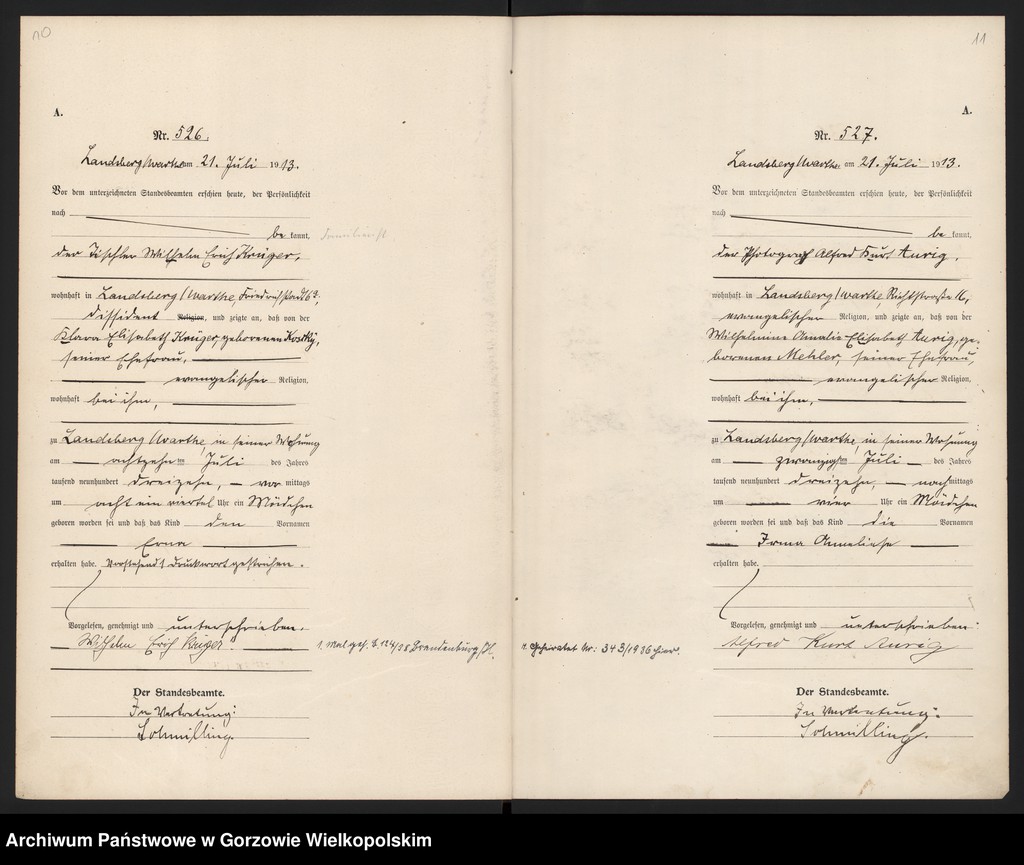 10
A.
Nr. 526.
Landsberg/Warthe am 21. Juli 1913.
Vor dem unterzeichneten Standesbeamten erschien heute, der Persönlichkeit
nach
be kannt,
der Tischler Wilhelm Erich Krüger,
wohnhaft in Landsberg/Warthe, Friedrichstadt 69,
Dissident Religion, und zeigte an, daß von der
Klara Elisabeth Krüger, geborenen
seiner Ehefrau,
evangelischer Religion,
wohnhaft bei ihm,
zu Landsberg/Warthe, in seiner Wohnung
am achtzehnten Juli des Jahres
tausend neunhundert dreizehn, vor mittags
um acht ein viertel Uhr ein Mädchen
geboren worden sei und daß das Kind den Vornamen
Erna
erhalten habe. Vorstehend 1 Druckwort gestrichen.
Vorgelesen, genehmigt und unterschrieben.
Wilhelm Erich Krüger.
1. Mal geh. Nr. 124/38 Brandenburg/H.
Der Standesbeamte.
In Vertretung:
Schmilling.
11
A.
Nr. 527.
Landsberg/Warthe am 21. Juli 1913.
Vor dem unterzeichneten Standesbeamten erschien heute, der Persönlichkeit
nach
be kannt,
der Photograph Alfred Kurt Aurig,
wohnhaft in Landsberg/Warthe, Richtstraße 11,
evangelischer Religion, und zeigte an, daß von der
Wilhelmine Amalie Elisabeth Aurig, ge-
borenen Mehler, seiner Ehefrau,
evangelischer Religion,
wohnhaft bei ihm,
zu Landsberg/Warthe, in seiner Wohnung
am zwanzigsten Juli des Jahres
tausend neunhundert dreizehn, nach mittags
um vier Uhr ein Mädchen
geboren worden sei und daß das Kind die Vornamen
Irma Anneliese
erhalten habe.
Vorgelesen, genehmigt und unterschrieben:
Alfred Kurt Aurig
Geheiratet Nr: 343/1936 hier.
Der Standesbeamte.
In Vertretung:
Schmilling.
Archiwum Państwowe w Gorzowie Wielkopolskim